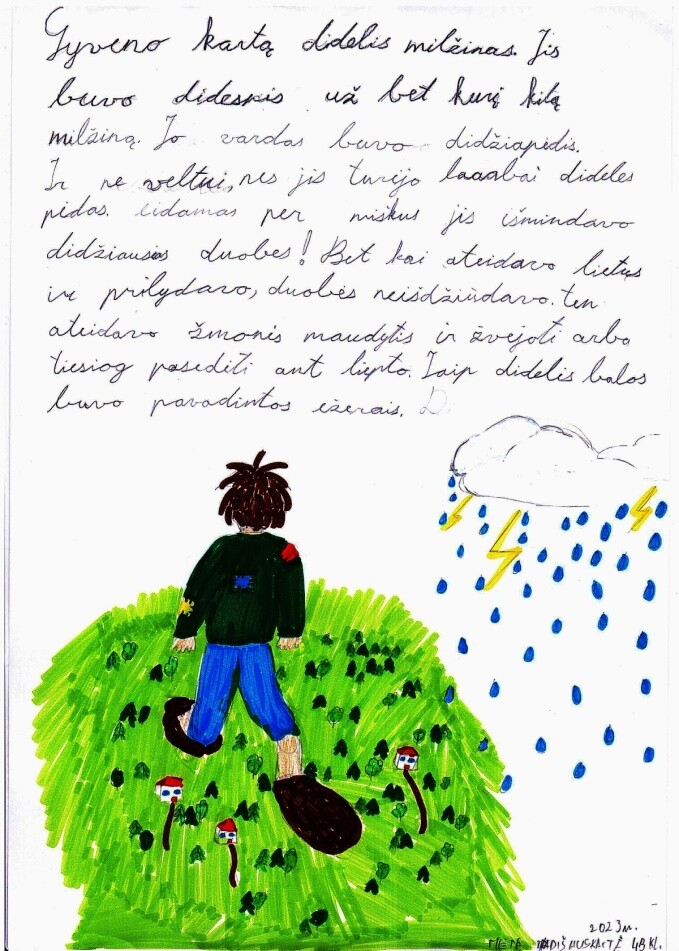 Gyveno kartą didelis milžinas. Jis
buvo didesnis už bet kurį kitą
milžiną. Jo vardas buvo didžiapėdis.
Ir ne veltui, nes jis turėjo laaabai dideles
pėdas. eidamas per miškus jis išmindavo
didžiausias duobes! Bet kai ateidavo lietus
ir prilydavo, duobės neišdžiūdavo. ten
ateidavo žmonės maudytis ir žvejoti arba
tiesiog pasėdėti ant liepto. Taip didelis balos
buvo pavadintos ežerais.
2023m.
4B kl.